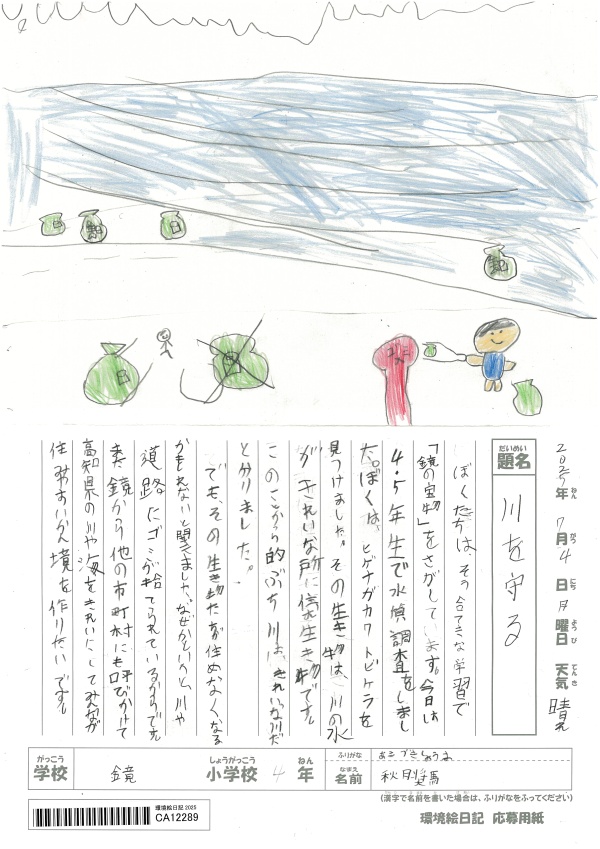 2025年ねん 7月がつ 4日にち 月曜日ようび 天気てんき 晴れ
だいめい
題名
川を守る
ぼくたちは、その合てきな学習で
「鏡の宝物」をさがしています。今日は
4・5年生で水偵調査をしまし
た。ぼくは、ヒゲナガカワトビケラを
見つけました。その生き物は、川の水
がきれいな所に信き生き物です。
このことから的ぶち川は、きれいな川だ
と分りました。
でも、その生き物たちが住めなくなる
かもしれないと聞きました。なぜかというと、川や
道路にゴミが拾てられているからです。
鏡から他の市町村にも呼びかけて
高知県の川や海をきれいにしてみんなが
住みやすいかん境を作りたいです。
がっこう
学校
鏡
しょうがっこう
小学校
4
ねん
年
ふりがな
なまえ
名前
秋月奨馬
(漢字で名前を書いた場合は、ふりがなをふってください)
環境絵日記2025
CA12289
環境絵日記 応募用紙